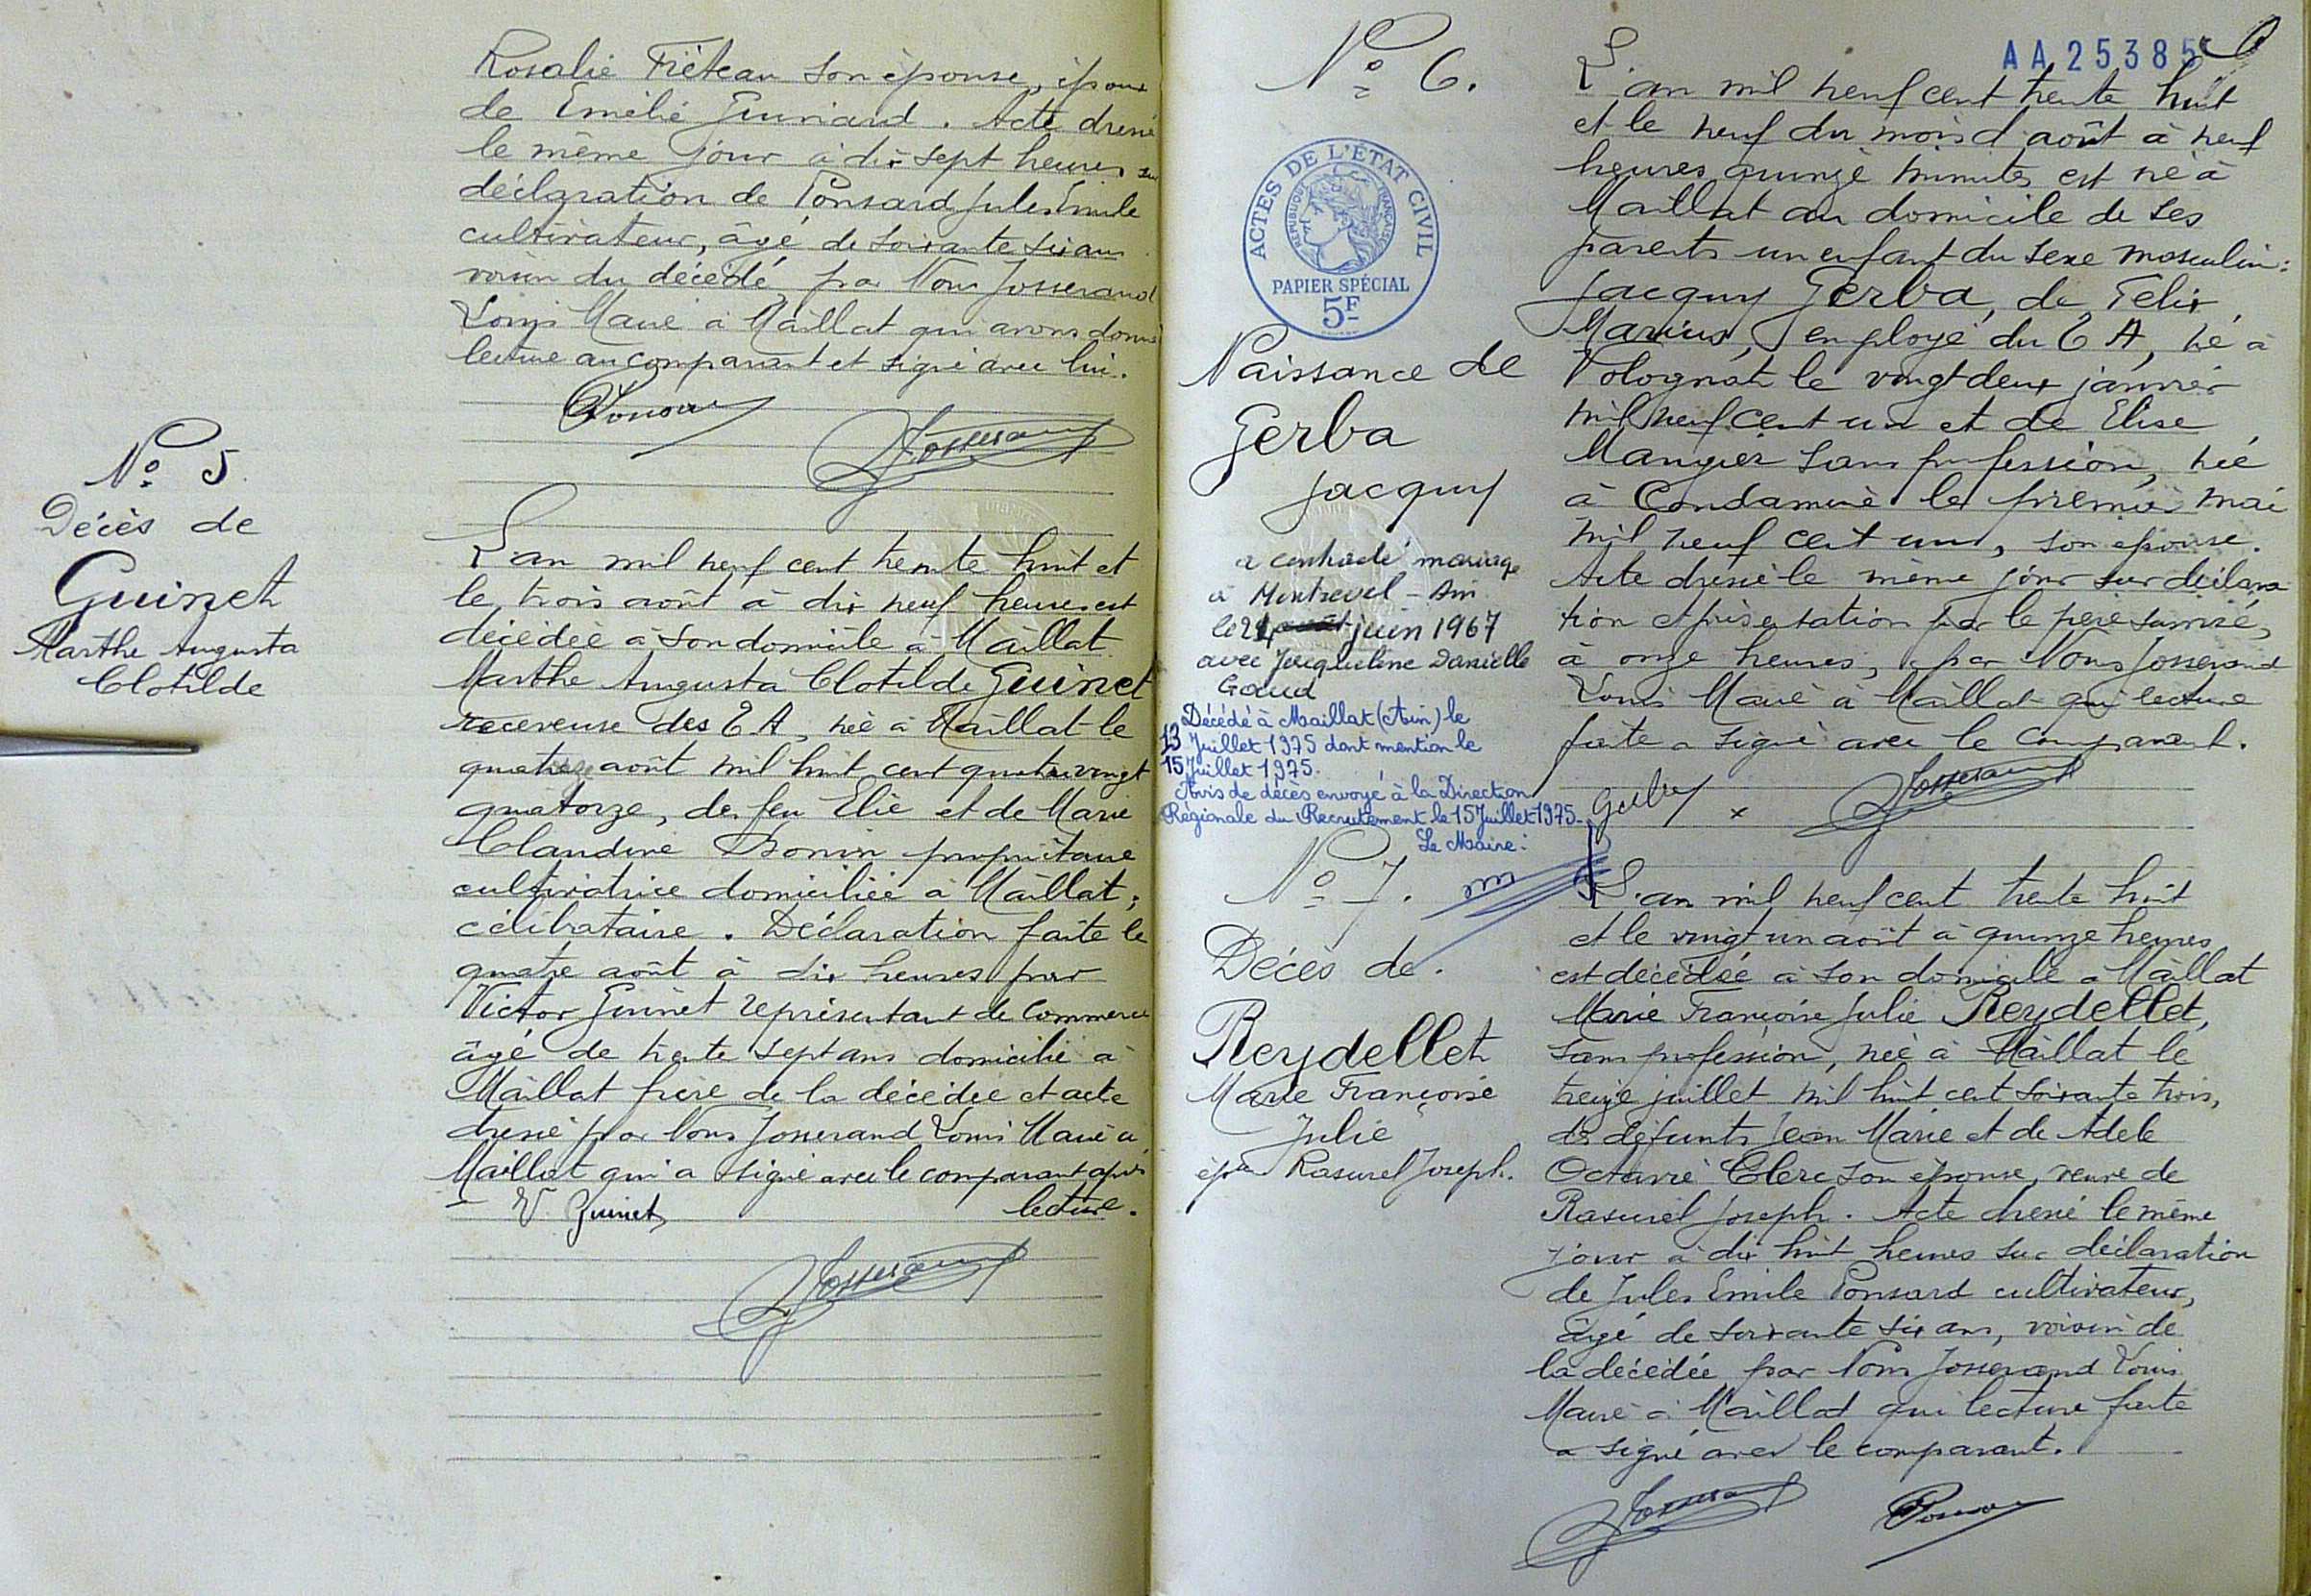 Rosalie Fiéteau son épouse, époux
de Emélie Guinard. Acte dressé
le même jour à dix sept heures sur
déclaration de Ponsard Jules Emile
cultivateur, âgé de soixante six ans
voisin du décédé par Nous Josserand
Louis Maire à Maillat qui avons donné
lecture au comparant et signé avec lui.
Nº 5.
Décès de
Guinet
Marthe Augusta
Clotilde
L'an mil neuf cent trente huit et
le trois août à dix neuf heures est
décédée à son domicile à Maillat
Marthe Augusta Clotilde Guinet
receveuse des T A, née à Maillat le
quatre août mil huit cent quatre vingt
quatorze, de feu Elie et de Marie
Claudine Bonin propriétaire
cultivatrice domiciliée à Maillat;
célibataire. Déclaration faite le
quatre août à dix heures par
Victor Guinet représentant de commerce
âgé de trente sept ans domicilié à
Maillat frère de la décédée et acte
dressé par Nous Josserand Louis Maire à
Maillat qui a signé avec le comparant après
lecture.
V. Guinet
AA 25385
Nº 6.
ACTES DE L'ÉTAT CIVIL
RÉPUBLIQUE FRANÇAISE
PAPIER SPÉCIAL
5F
Naissance de
Gerba
Jacquy
a contracté mariage
à Montrevel - Ain
le 24 juin 1967
avec Jacqueline Danielle
Gaud
Décédé à Maillat (Ain) le
13 Juillet 1975 dont mention le
15 Juillet 1975.
Avis de décès envoyé à la Direction
Régionale du Recrutement le 15 Juillet 1975.
Le Maire:
L'an mil neuf cent trente huit
et le neuf du mois d'août à neuf
heures quinze minutes est né à
Maillat au domicile de ses
parents un enfant du sexe masculin:
Jacquy Gerba, de Felix
Marius, employé du T A, né à
Volognat le vingt deux janvier
mil neuf cent un et de Elise
Mangier sans profession, née
à Condamine le premier mai
mil neuf cent un, son épouse.
Acte dressé le même jour sur déclara
tion et présentation par le père susvisé,
à onze heures, par Nous Josserand
Louis Maire à Maillat qui lecture
faite a signé avec le comparant.
Nº 7.
Décès de.
Reydellet
Marie Françoise
Julie
épse Rasurel Joseph.
L'an mil neuf cent trente huit
et le vingt un août à quinze heures
est décédée à son domicile à Maillat
Marie Françoise Julie Reydellet,
sans profession, née à Maillat le
treize juillet mil huit cent soixante trois,
de défunts Jean Marie et de Adele
Octavie Clerc son épouse, veuve de
Rasurel Joseph. Acte dressé le même
jour à dix huit heures sur déclaration
de Jules Emile Ponsard cultivateur,
âgé de soixante six ans, voisin de
la décédée par Nous Josserand Louis
Maire à Maillat qui lecture faite
a signé avec le comparant.